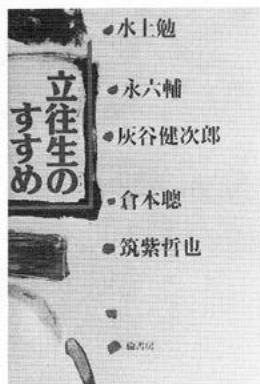 立往生の
すすめ
水上勉
永六輔
灰谷健次郎
倉本聰
筑紫哲也